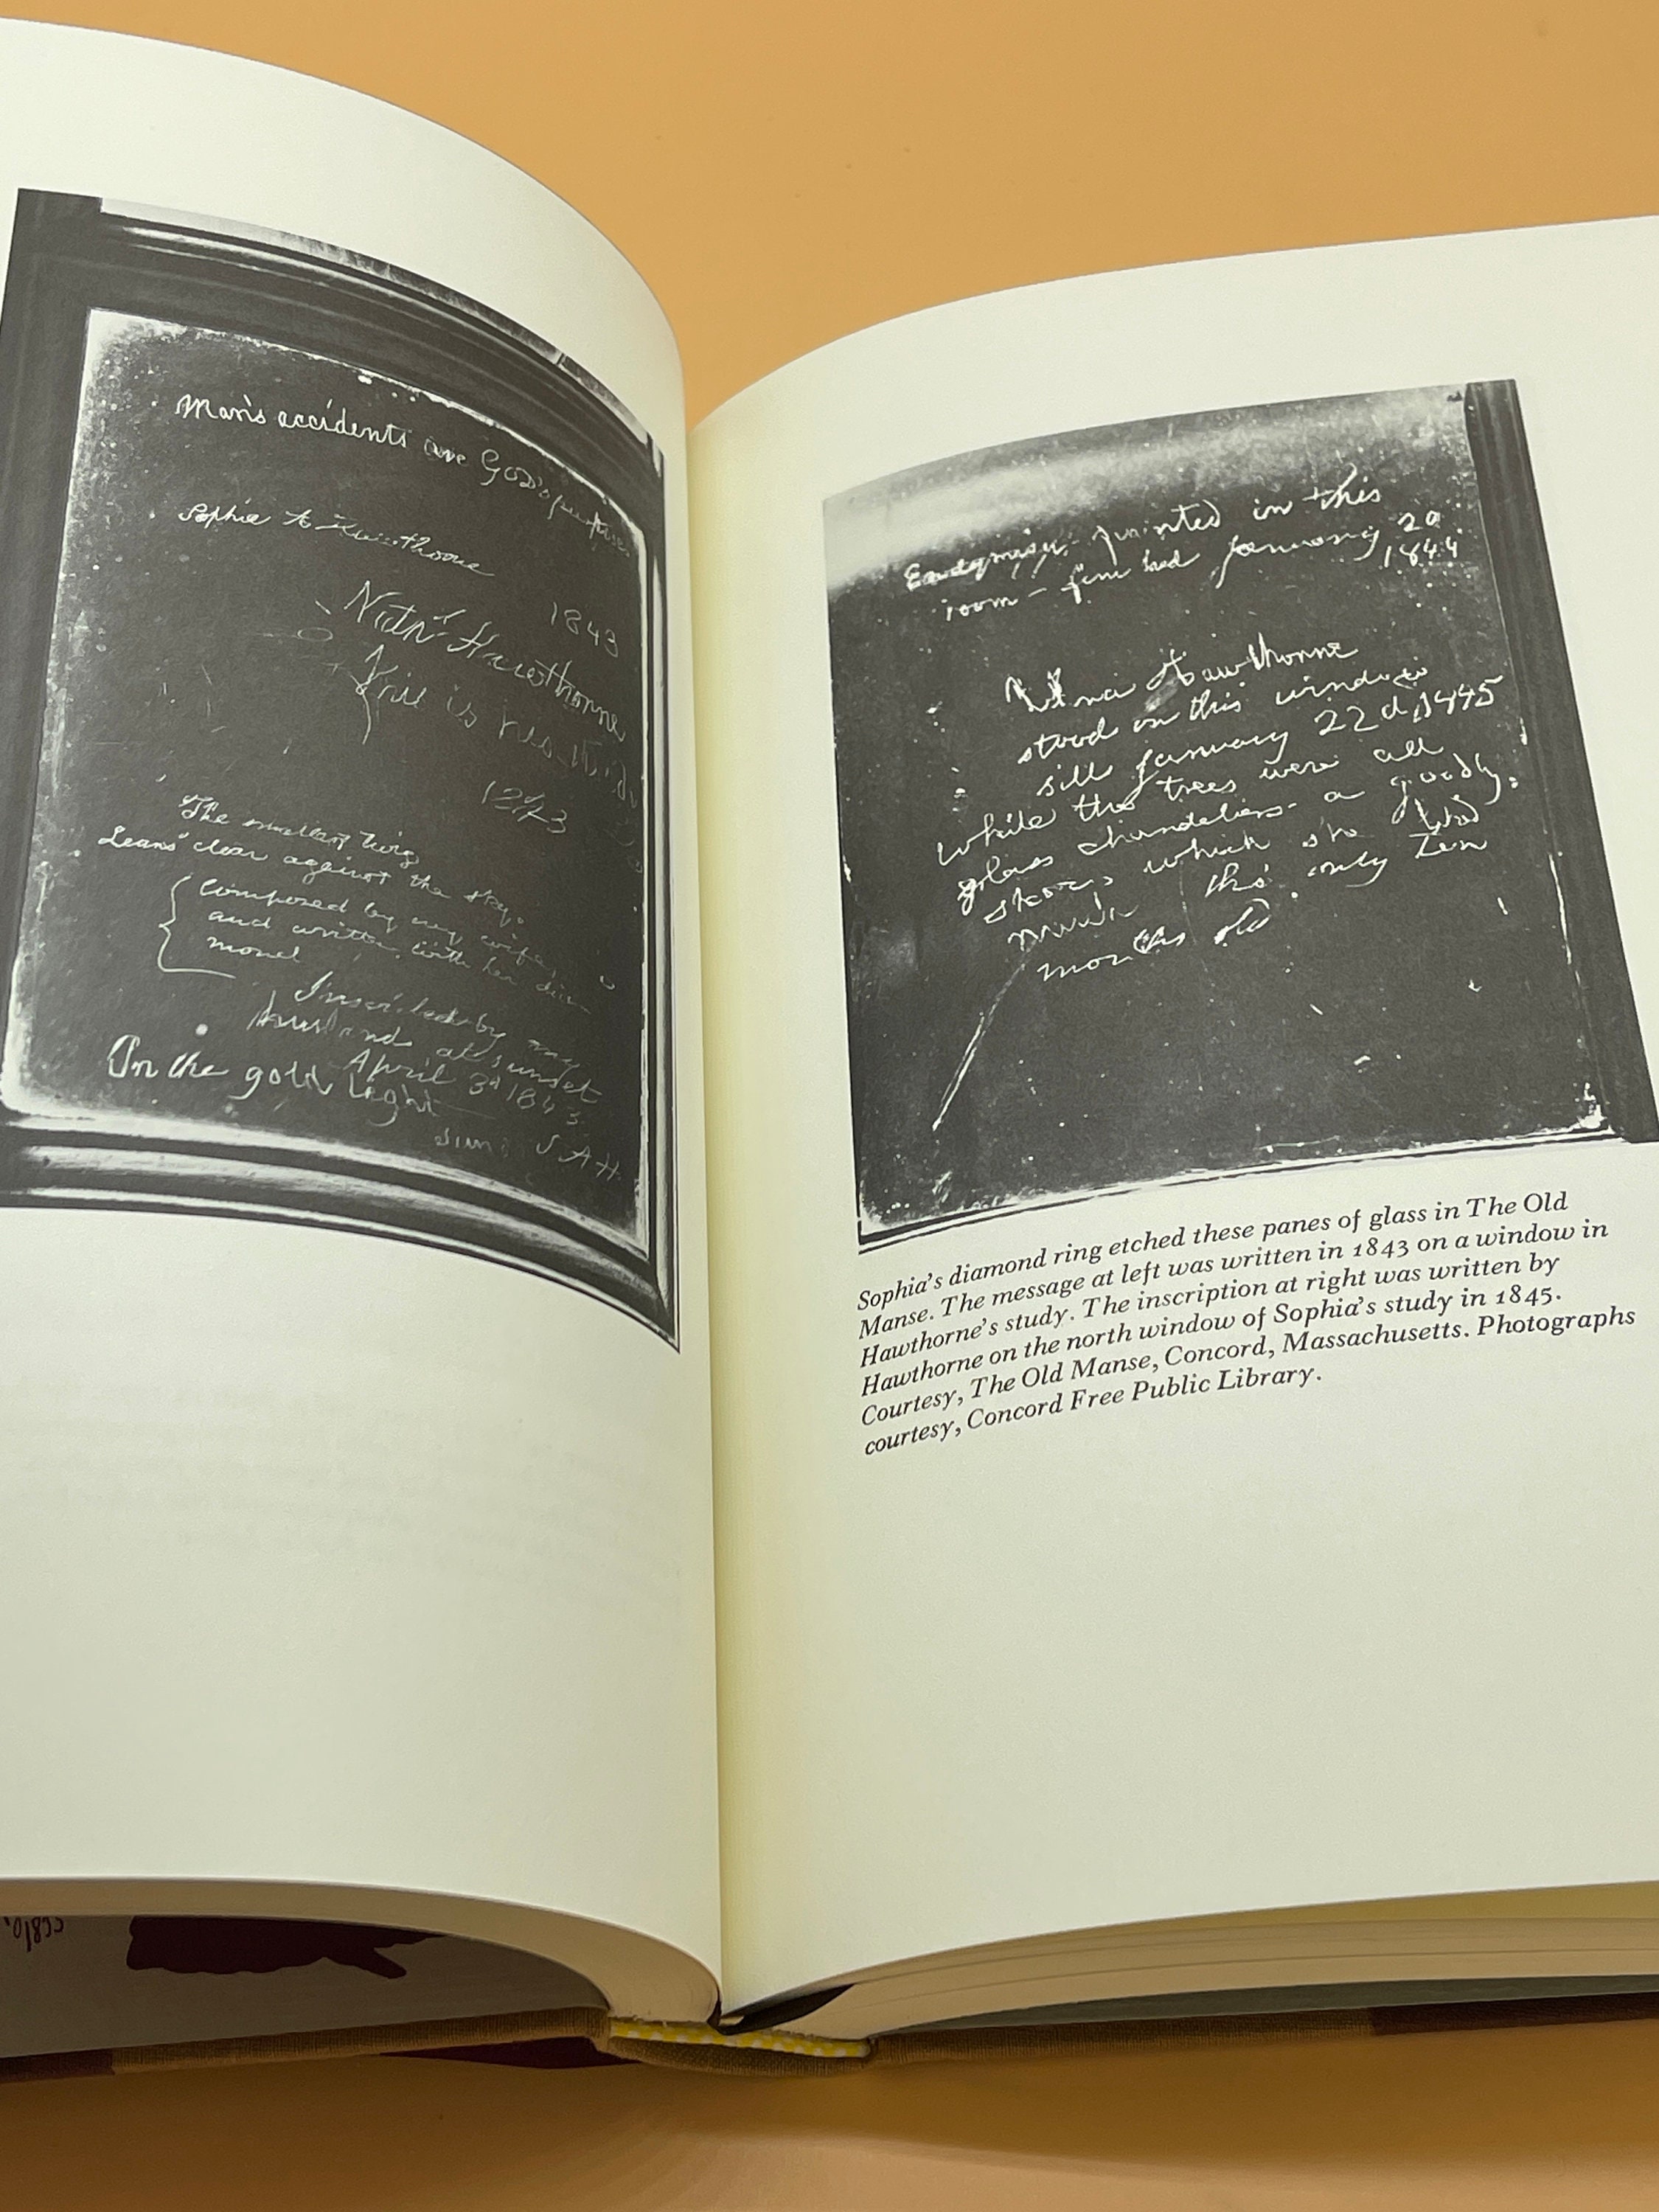 Man's accidents are GOD's purposes
Sophia A Hawthorne
1843
Nath Hawthorne
This is his study
1843
The smallest twig
Leans clear against the sky.
Composed by my wife,
and written with her dia-
mond
Inscribed by my
husband at sunset
April 3d 1843
On the gold light
S A H
Endymion painted in this
room - finished January 20
1844
Una Hawthorne
stood on this window
sill January 22d 1845
while the trees were all
glass chandeliers - a goodly
show which she liked
much tho' only ten
months old
Sophia's diamond ring etched these panes of glass in The Old
Manse. The message at left was written in 1843 on a window in
Hawthorne's study. The inscription at right was written by
Hawthorne on the north window of Sophia's study in 1845.
Courtesy, The Old Manse, Concord, Massachusetts. Photographs
courtesy, Concord Free Public Library.